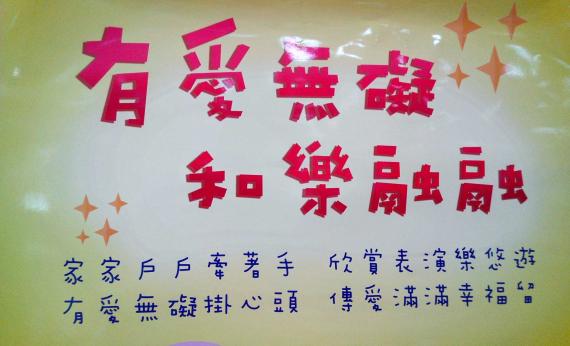 有愛無礙
和樂融融
家家戶戶牽著手 欣賞表演樂悠遊
有愛無礙掛心頭 傳愛滿滿幸福留